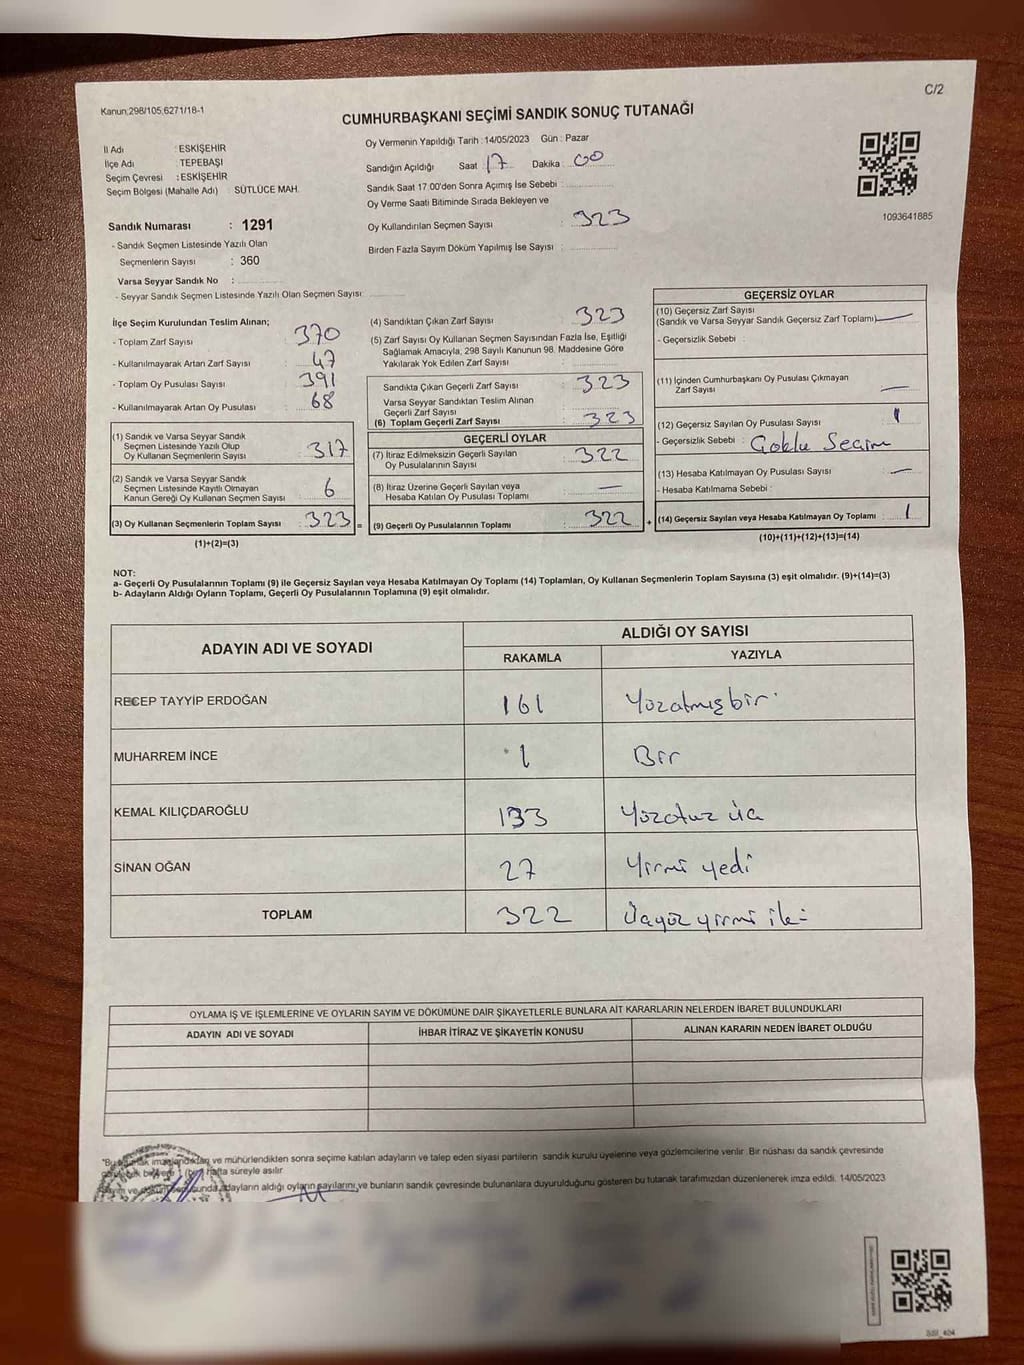 C/2
Kanun;298/105,6271/18-1
CUMHURBAŞKANI SEÇİMİ SANDIK SONUÇ TUTANAĞI
İl Adı : ESKİŞEHİR
İlçe Adı : TEPEBAŞI
Seçim Çevresi : ESKİŞEHİR
Seçim Bölgesi (Mahalle Adı) : SÜTLÜCE MAH.
Sandık Numarası : 1291
- Sandık Seçmen Listesinde Yazılı Olan
Seçmenlerin Sayısı : 360
Varsa Seyyar Sandık No :
- Seyyar Sandık Seçmen Listesinde Yazılı Olan Seçmen Sayısı:
Oy Vermenin Yapıldığı Tarih : 14/05/2023 Gün : Pazar
Sandığın Açıldığı Saat : 17 Dakika : 00
Sandık Saat 17:00'den Sonra Açımış İse Sebebi :
Oy Verme Saati Bitiminde Sırada Bekleyen ve
Oy Kullandırılan Seçmen Sayısı : 323
Birden Fazla Sayım Döküm Yapılmış İse Sayısı :
1093641885
İlçe Seçim Kurulundan Teslim Alınan;
- Toplam Zarf Sayısı : 370
- Kullanılmayarak Artan Zarf Sayısı : 47
- Toplam Oy Pusulası Sayısı : 391
- Kullanılmayarak Artan Oy Pusulası : 68
(1) Sandık ve Varsa Seyyar Sandık
Seçmen Listesinde Yazılı Olup
Oy Kullanan Seçmenlerin Sayısı : 317
(2) Sandık ve Varsa Seyyar Sandık
Seçmen Listesinde Kayıtlı Olmayan
Kanun Gereği Oy Kullanan Seçmen Sayısı : 6
(3) Oy Kullanan Seçmenlerin Toplam Sayısı : 323 =
(1)+(2)=(3)
(4) Sandıktan Çıkan Zarf Sayısı : 323
(5) Zarf Sayısı Oy Kullanan Seçmen Sayısından Fazla İse, Eşitliği
Sağlamak Amacıyla, 298 Sayılı Kanunun 98. Maddesine Göre
Yakılarak Yok Edilen Zarf Sayısı :
Sandıkta Çıkan Geçerli Zarf Sayısı : 323
Varsa Seyyar Sandıktan Teslim Alınan
Geçerli Zarf Sayısı :
(6) Toplam Geçerli Zarf Sayısı : 323
GEÇERLİ OYLAR
(7) İtiraz Edilmeksizin Geçerli Sayılan
Oy Pusulalarının Sayısı : 322
(8) İtiraz Üzerine Geçerli Sayılan veya
Hesaba Katılan Oy Pusulası Toplamı : —
(9) Geçerli Oy Pusulalarının Toplamı : 322 +
GEÇERSİZ OYLAR
(10) Geçersiz Zarf Sayısı
(Sandık ve Varsa Seyyar Sandık Geçersiz Zarf Toplamı) : —
- Geçersizlik Sebebi :
(11) İçinden Cumhurbaşkanı Oy Pusulası Çıkmayan
Zarf Sayısı : —
(12) Geçersiz Sayılan Oy Pusulası Sayısı : 1
- Geçersizlik Sebebi : Çoklu Seçim
(13) Hesaba Katılmayan Oy Pusulası Sayısı : —
- Hesaba Katılmama Sebebi :
(14) Geçersiz Sayılan veya Hesaba Katılmayan Oy Toplamı : 1
(10)+(11)+(12)+(13)=(14)
NOT:
a- Geçerli Oy Pusulalarının Toplamı (9) ile Geçersiz Sayılan veya Hesaba Katılmayan Oy Toplamı (14) Toplamları, Oy Kullanan Seçmenlerin Toplam Sayısına (3) eşit olmalıdır. (9)+(14)=(3)
b- Adayların Aldığı Oyların Toplamı, Geçerli Oy Pusulalarının Toplamına (9) eşit olmalıdır.
ADAYIN ADI VE SOYADI
ALDIĞI OY SAYISI
RAKAMLA YAZIYLA
RECEP TAYYİP ERDOĞAN 161 Yüzatmışbir
MUHARREM İNCE 1 Bir
KEMAL KILIÇDAROĞLU 133 Yüzotuz üç
SİNAN OĞAN 27 Yirmi yedi
TOPLAM 322 Üçyüz yirmi iki
OYLAMA İŞ VE İŞLEMLERİNE VE OYLARIN SAYIM VE DÖKÜMÜNE DAİR ŞİKAYETLERLE BUNLARA AİT KARARLARIN NELERDEN İBARET BULUNDUKLARI
ADAYIN ADI VE SOYADI İHBAR İTİRAZ VE ŞİKAYETİN KONUSU ALINAN KARARIN NEDEN İBARET OLDUĞU
ve mühürlendikten sonra seçime katılan adayların ve talep eden siyasi partilerin sandık kurulu üyelerine veya gözlemcilerine verilir. Bir nüshası da sandık çevresinde
hafta süreyle asılır
adayların aldığı oyların sayılarını ve bunların sandık çevresinde bulunanlara duyurulduğunu gösteren bu tutanak tarafımızdan düzenlenerek imza edildi. 14/05/2023